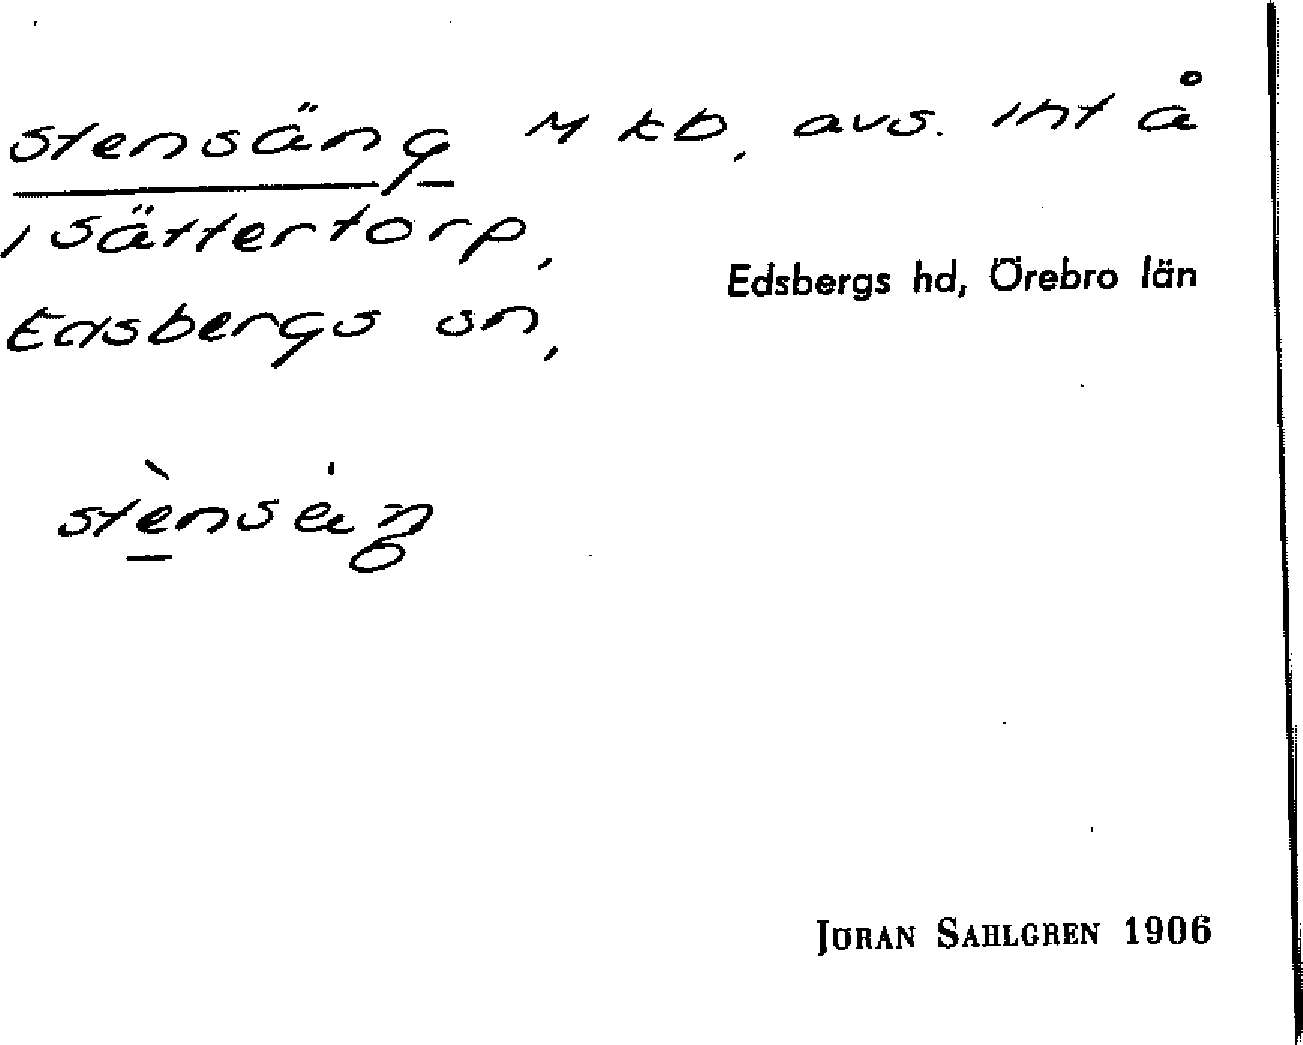 Stensäng M kb, avs. int å
i Sättertorp,
Edsbergs sn,
Edsbergs hd, Örebro län
stènsäŋ
JÖRAN SAHLGREN 1906